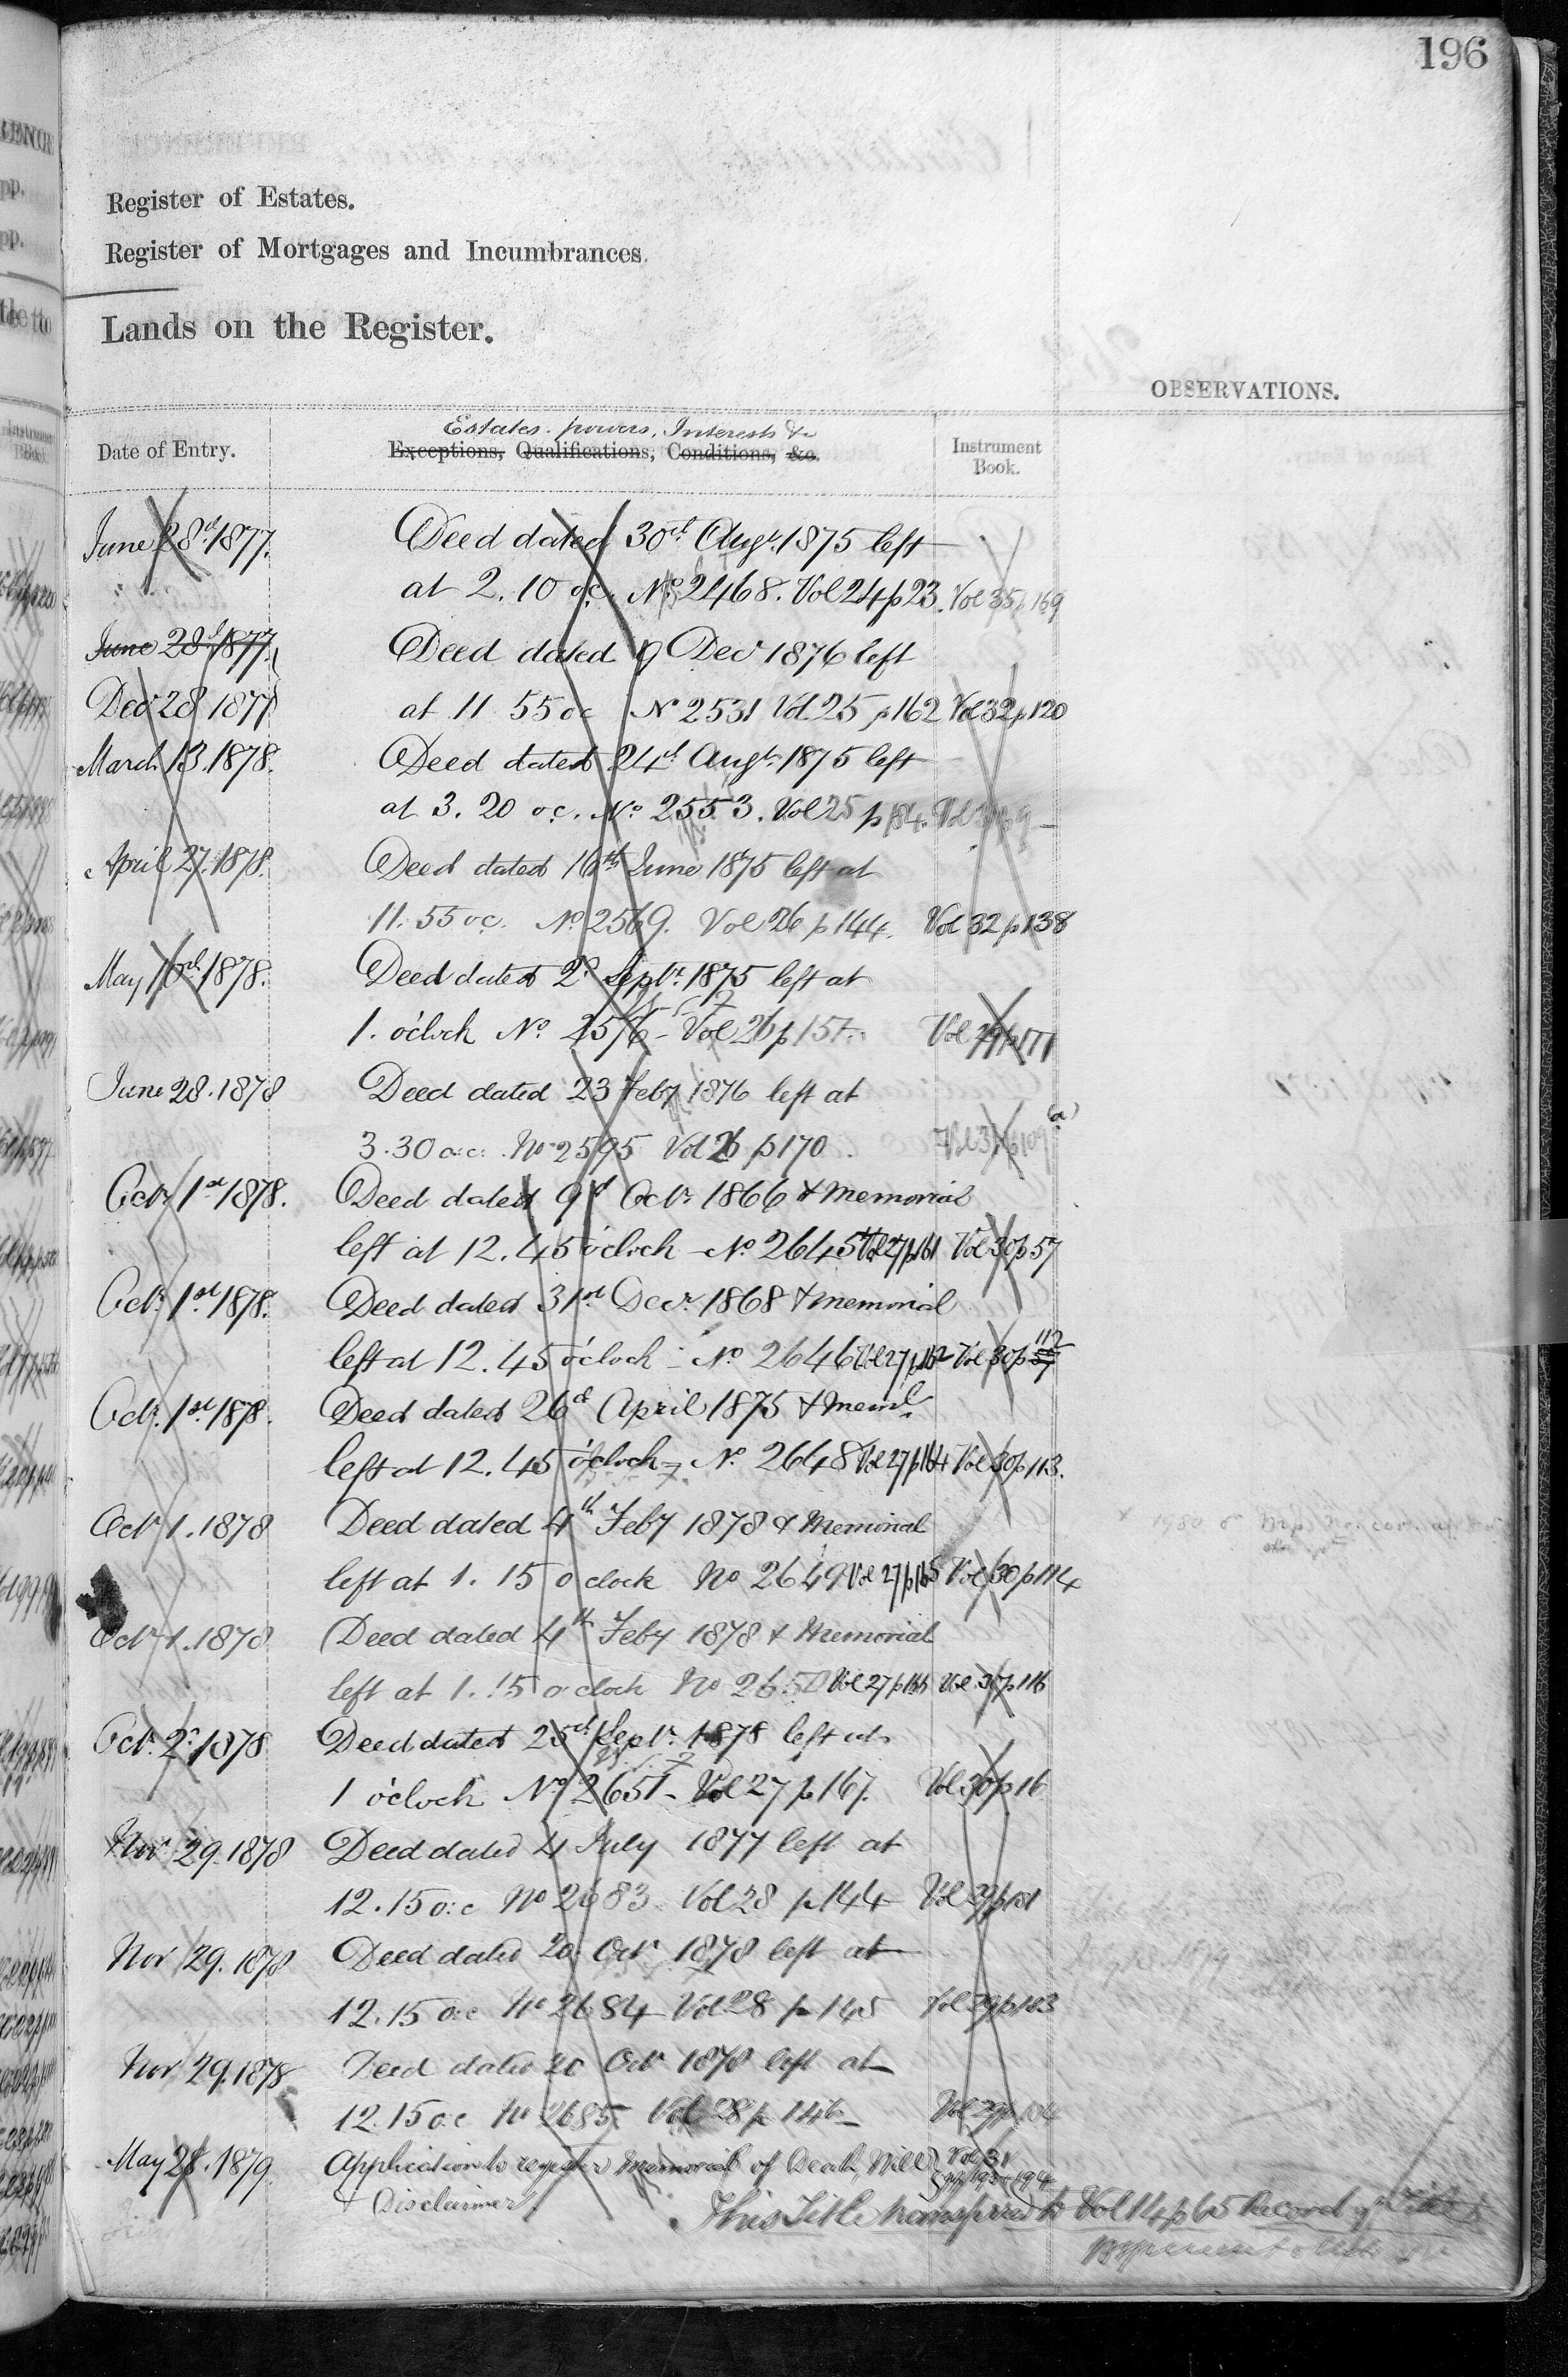 196
Register of Estates.
Register of Mortgages and Incumbrances.
Lands on the Register.
OBSERVATIONS.
Estates. powers, Interests &c
Date of Entry. Exceptions, Qualifications, Conditions, &c. Instrument Book.
June 28th 1877. Deed dated 30th Augt. 1875 left
at 2.10 oc. No 2468. Vol 24 p 23. Vol 35 p 169
June 28th 1877. Deed dated 19 Decr 1876 left
Decr 28 1877 at 11 55 oc No 2531 Vol 25 p 162 Vol 32 p 120
March 13. 1878. Deed dated 24th Augt. 1875 left
at 3.20 oc. No. 2553. Vol 25 p 184.
April 27. 1878. Deed dated 16th June 1875 left at
11.55 oc. No. 2569. Vol 26 p 144. Vol 32 p 138
May 10th 1878. Deed dated 2d Septr. 1875 left at
1. o'clock No. 2576 - Vol 26 p 151. Vol 29 p 171
June 28. 1878 Deed dated 23 Feby 1876 left at
3.30 o.c. No 2595 Vol 26 p 170. (a)
Octr 1st 1878. Deed dated 9th Octr. 1866 & Memorial
left at 12.45 o'clock - No. 2645 Vol 27 p 161 Vol 30 p 57
Octr. 1st 1878. Deed dated 31st Decr. 1868 & Memorial
left at 12.45 o'clock - No. 2646 Vol 27 p 162 Vol 30 p 57 112
Octr. 1st 1878. Deed dated 26th April 1875 & Meml.
left at 12.45 o'clock - No. 2648 Vol 27 p 164 Vol 30 p 113.
Octr 1. 1878 Deed dated 4th Feby 1878 & Memorial
left at 1.15 o clock No 2649 Vol 27 p 165 Vol 30 p 114
Octr 1. 1878 Deed dated 4th Feby 1878 & Memorial
left at 1.15 o clock No 2650 Vol 27 p 166 Vol 30 p 116
Octr. 2d 1878 Deed dated 25th Septr. 1878 left at
1 o'clock No. 2651 - Vol 27 p 167. Vol 30 p 16
Nov 29. 1878 Deed dated 4 July 1877 left at
12.15 o:c No 2683 Vol 28 p 144 Vol 29 p 181
Nov 29. 1878 Deed dated 20 Octr 1878 left at
12.15 o:c No 2684 Vol 28 p 145 Vol 29 p 183
Nov 29. 1878 Deed dated 20 Octr 1878 left at
12.15 o:c No 2685 Vol 28 p 146 Vol 29 p 184
May 28. 1879. Application to register Memorial of Death, Will Vol 31
& Disclaimer.
This Title transferred to Vol 14 p 65 Record of Title